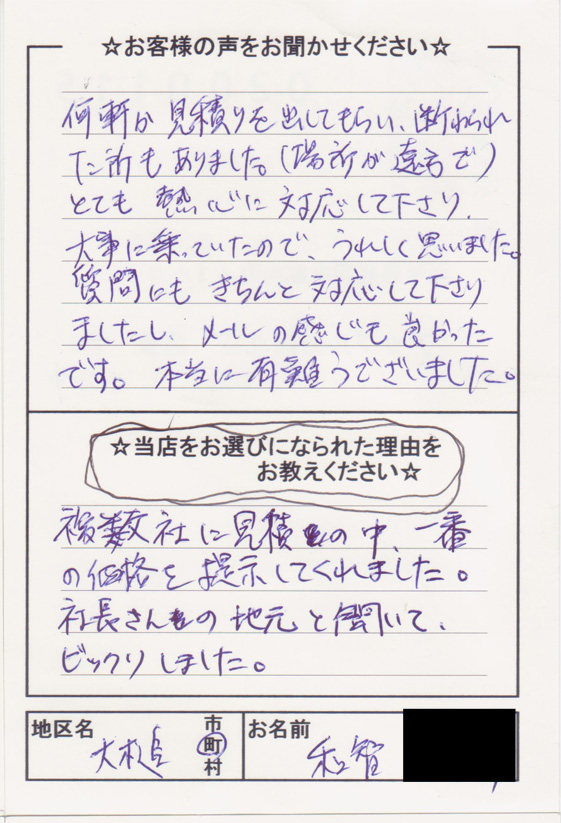 ☆お客様の声をお聞かせください☆
何軒か見積りを出してもらい、断わられ
た所もありました。(場所が遠方で)
とても熱心に対応して下さり、
大事に乗っていたので、うれしく思いました。
質問にもきちんと対応して下さり
ましたし、メールの感じも良かった
です。本当に有難うございました。
☆当店をお選びになられた理由を
お教えください☆
複数社に見積の中、一番
の価格を提示してくれました。
社長さんの地元と聞いて、
ビックリしました。
地区名 大槌 市町村 お名前 和智